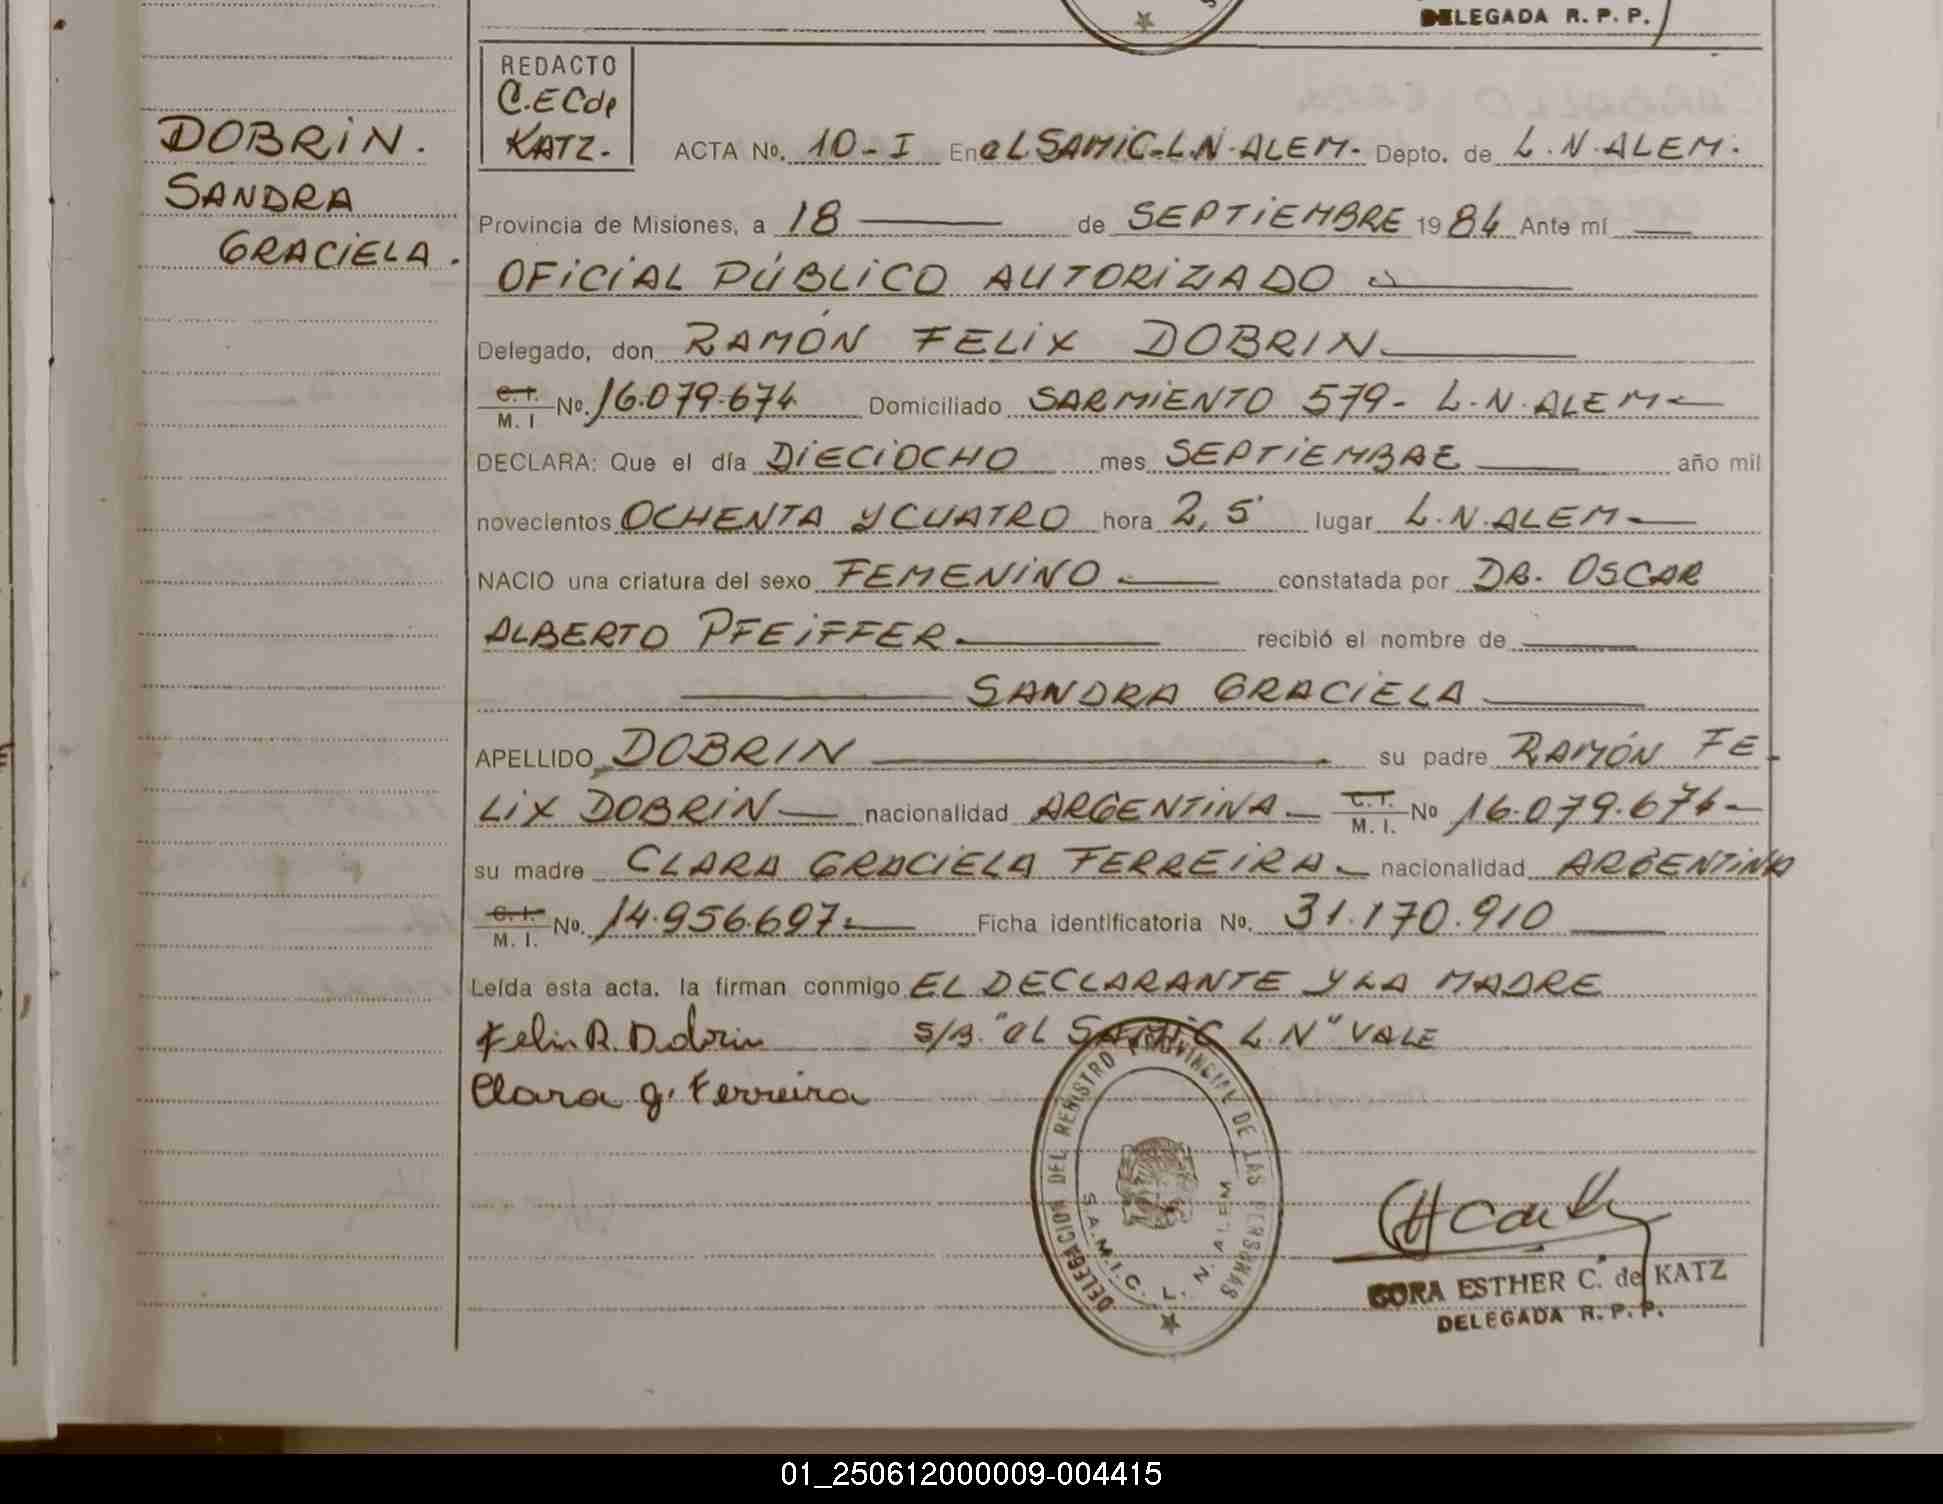 DELEGADA R. P. P.
REDACTO
C.E.C de
KATZ.-
DOBRIN.
SANDRA
GRACIELA.
ACTA No. 10-I En el SAMIC-L.N.ALEM- Depto. de L.N.ALEM.
Provincia de Misiones, a 18 de SEPTIEMBRE 1984 Ante mí
OFICIAL PÚBLICO AUTORIZADO
Delegado, don RAMÓN FELIX DOBRIN.
C.I. M. I No. 16.079.674 Domiciliado SARMIENTO 579- L.N.ALEM-
DECLARA: Que el día DIECIOCHO mes SEPTIEMBRE año mil
novecientos OCHENTA Y CUATRO hora 2,5 lugar L.N.ALEM-
NACIO una criatura del sexo FEMENINO constatada por DR. OSCAR
ALBERTO PFEIFFER recibió el nombre de
SANDRA GRACIELA
APELLIDO DOBRIN su padre RAMÓN FE-
LIX DOBRIN nacionalidad ARGENTINA C.I. M. I. No 16.079.674-
su madre CLARA GRACIELA FERREIRA nacionalidad ARGENTINA
C.I. M. I. No. 14.956.697- Ficha identificatoria No. 31.170.910
Leída esta acta, la firman conmigo EL DECLARANTE Y LA MADRE
Felix R. Dobrin S/B. "el SAMIC L.N" VALE
Clara G. Ferreira
DELEGACION DEL REGISTRO PROVINCIAL DE LAS PERSONAS
S.A.M.I.C. L. N. ALEM
CORA ESTHER C. de KATZ
DELEGADA R. P. P.
01_250612000009-004415